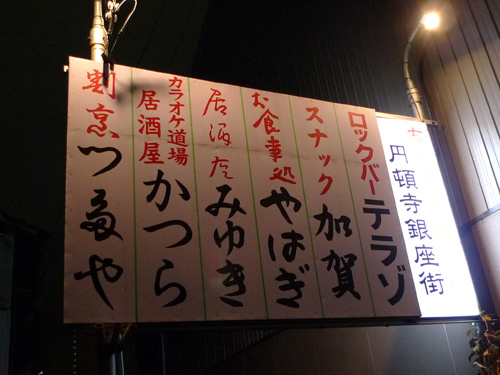 円頓寺銀座街
ロックバーテラゾ
スナック 加賀
お食事処 やはぎ
居酒屋 みゆき
カラオケ道場
居酒屋 かつら
割烹 つるや